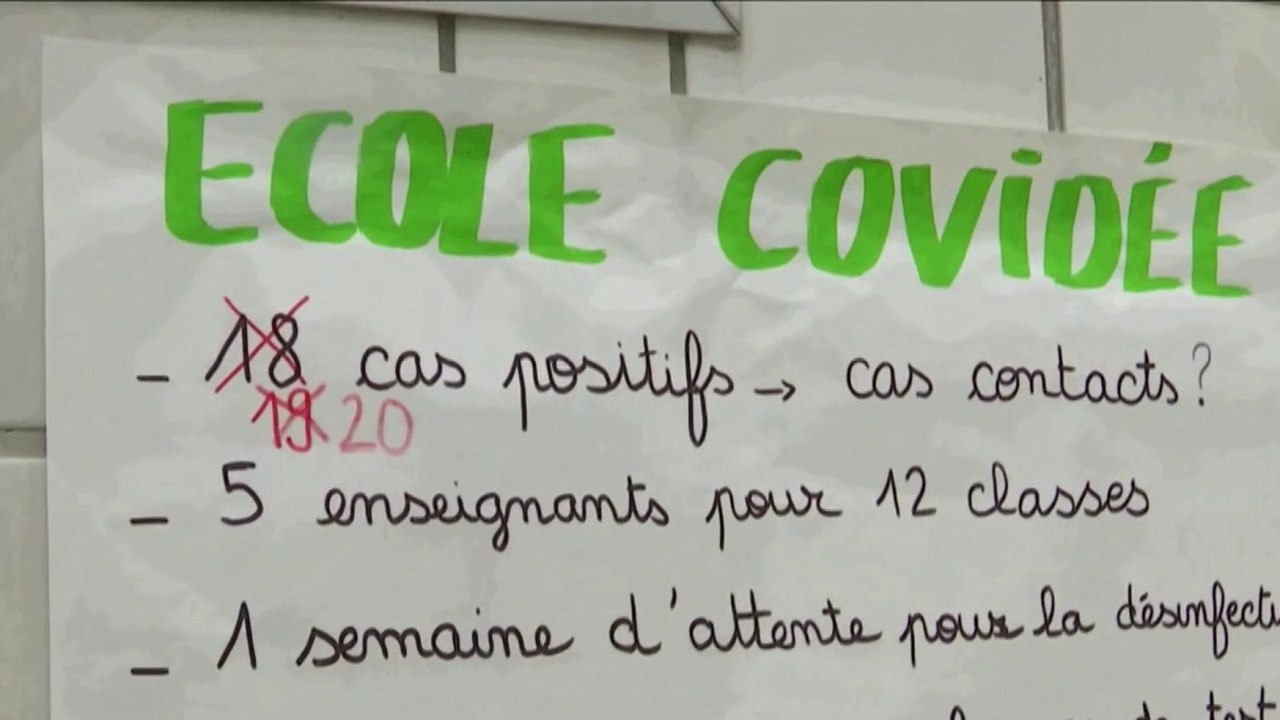 ECOLE COVIDÉE
- 18 cas positifs → cas contacts?
19 20
- 5 enseignants pour 12 classes
- 1 semaine d'attente pour la désinfecti